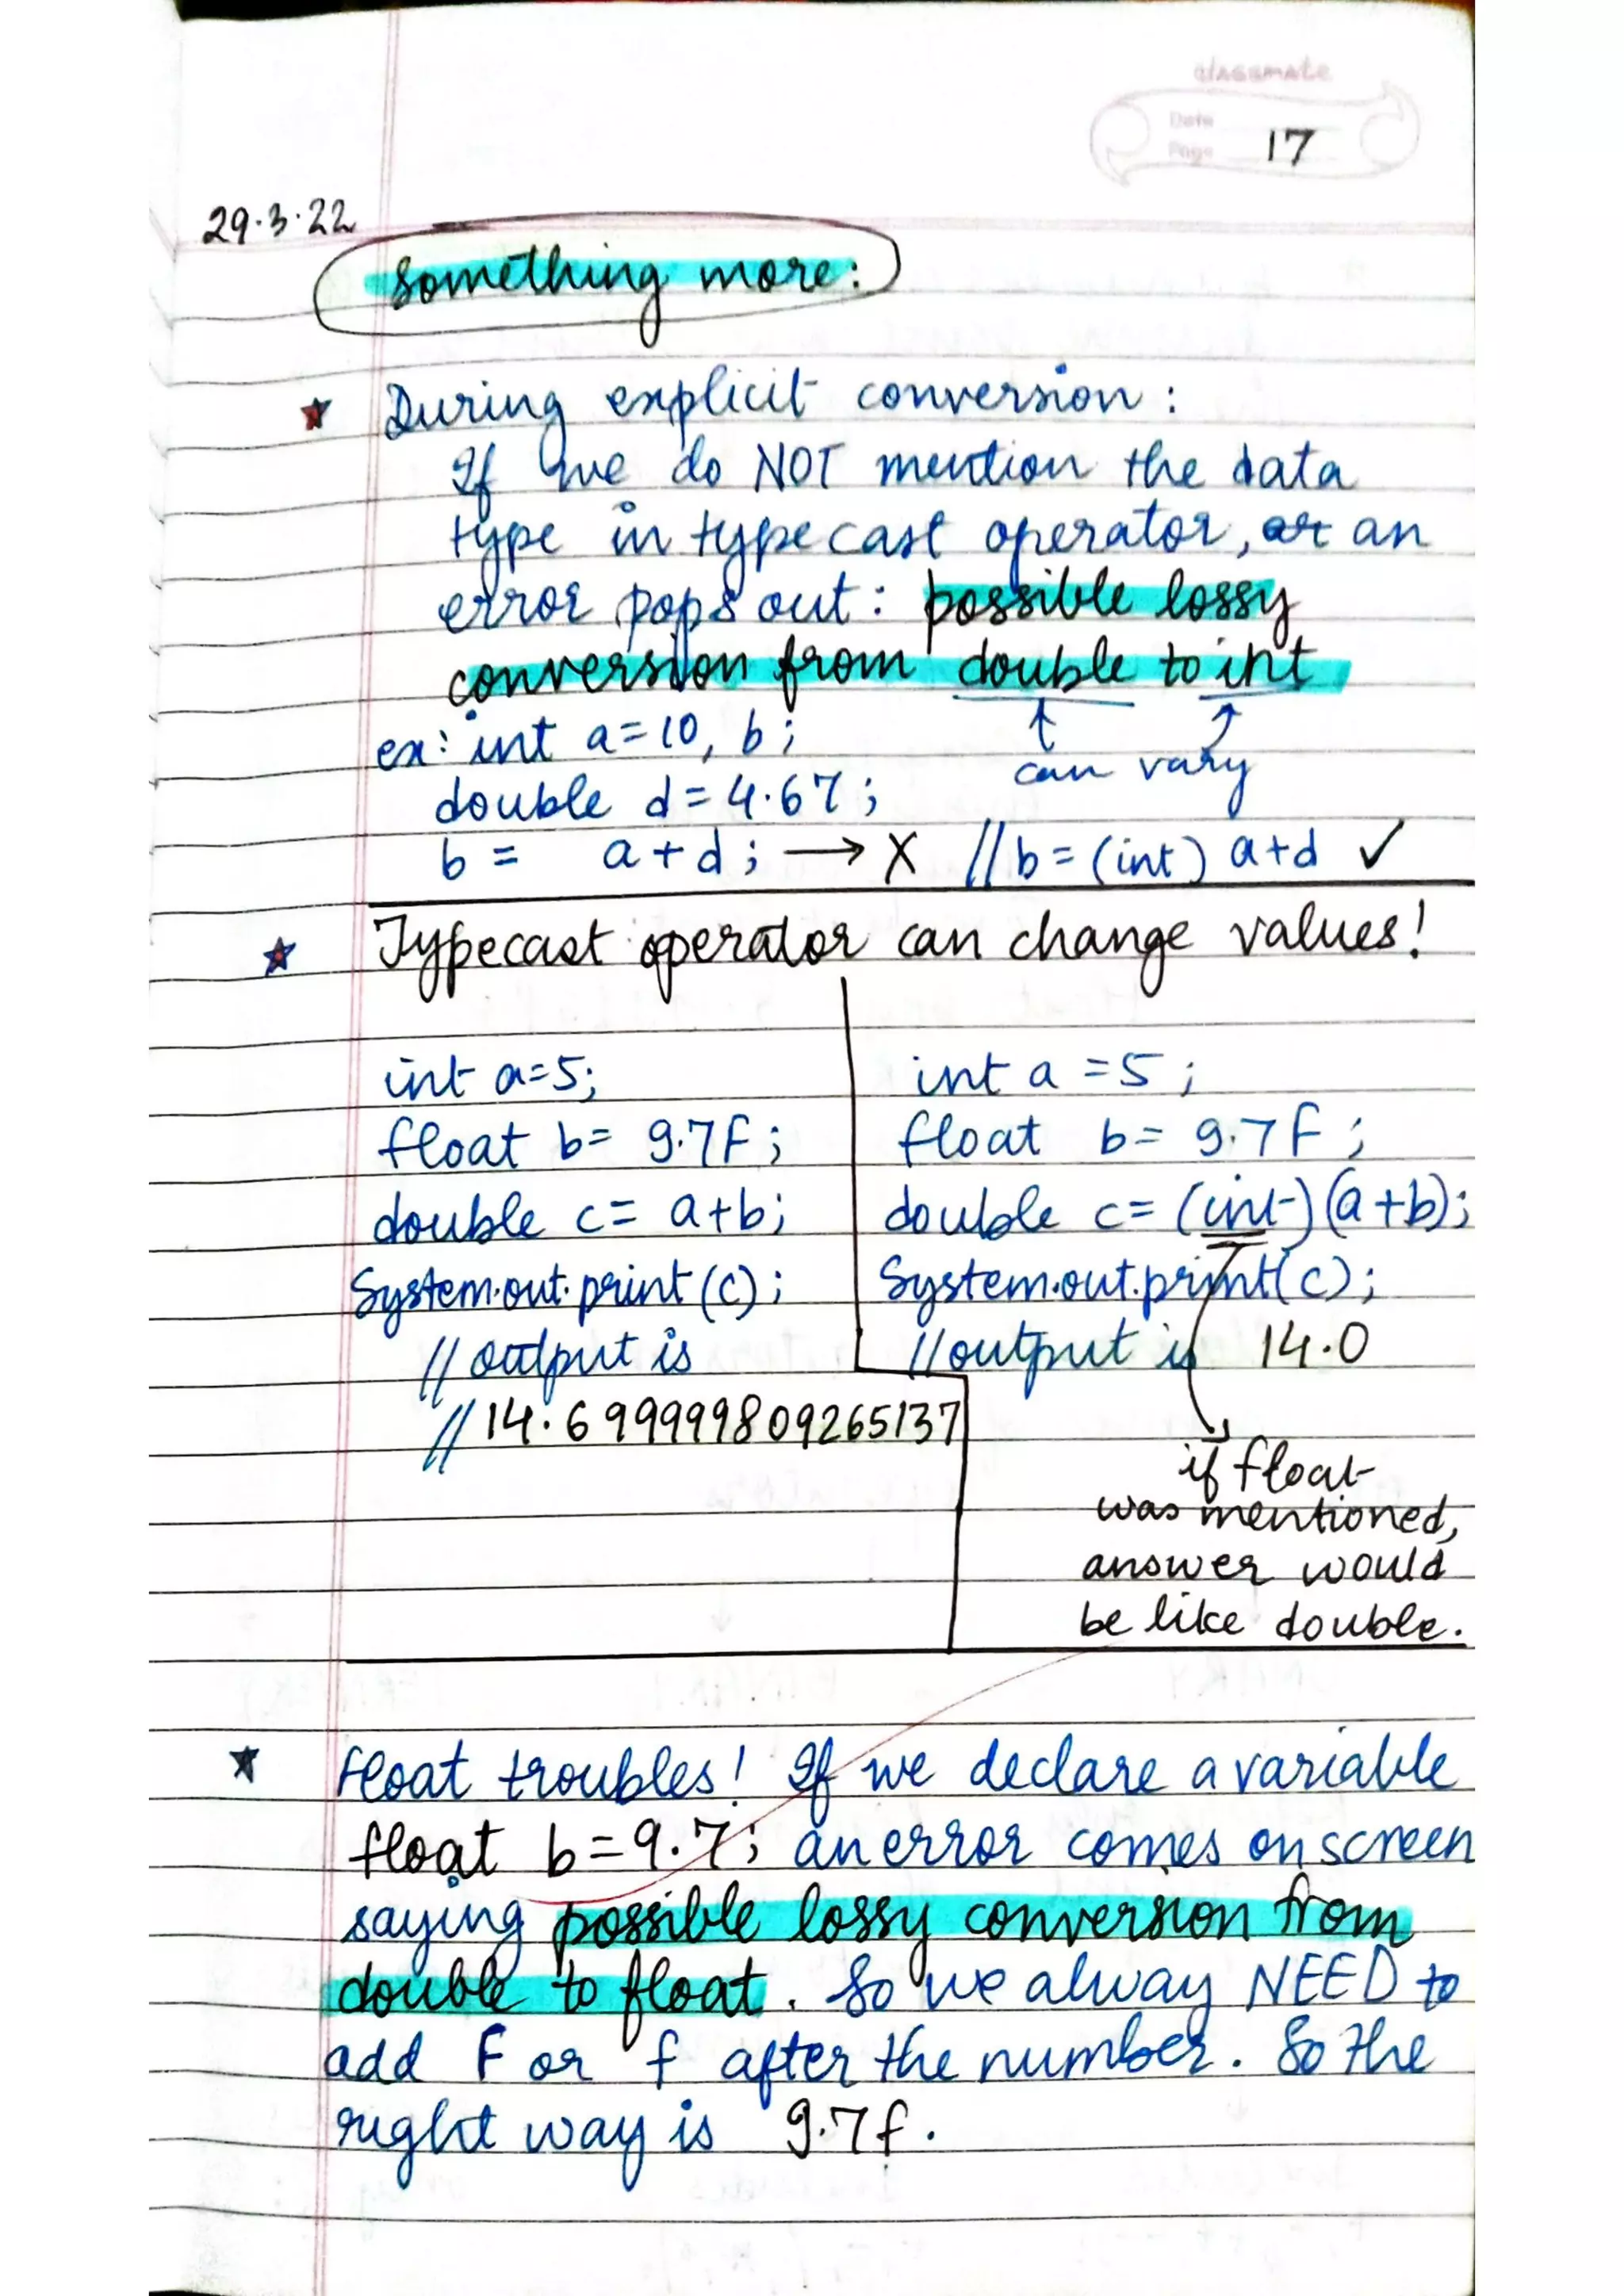 classmate
Date
Page 17
29.3.22
Something more:
★ During explicit conversion:
If we do NOT mention the data
type in type cast operator, an
error pops out: possible lossy
conversion from double to int
ex: int a=10, b;
can vary
double d=4.67;
b = a+d; → X //b=(int) a+d ✓
★ Typecast operator can change values!
int a=5;
float b= 9.7F;
double c= a+b;
System.out.print(c);
// output is
// 14.699999809265137
int a =5;
float b= 9.7F;
double c= (int)(a+b);
System.out.print(c);
//output is 14.0
if float
was mentioned,
answer would
be like double.
★ Float troubles! If we declare a variable
float b=9.7; an error comes on screen
saying possible lossy conversion from
double to float. So we alway NEED to
add F or f after the number. So the
right way is 9.7f.